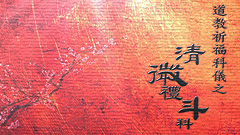 道教祈福科儀之
清微禮斗科